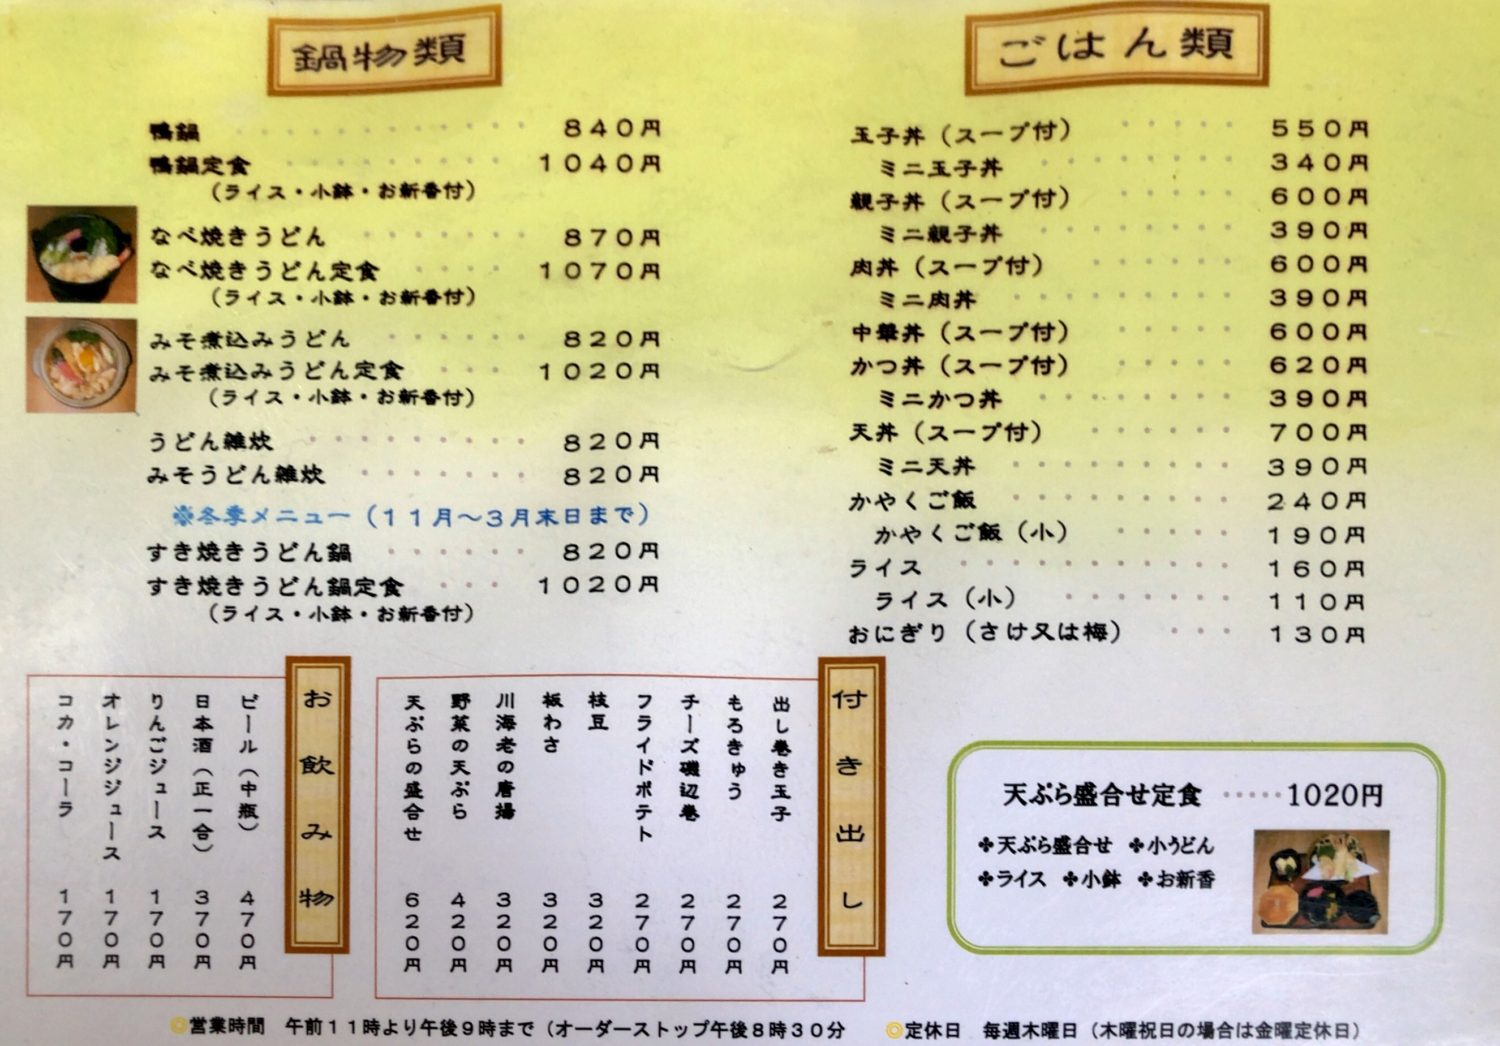 鍋物類
鴨鍋 ・・・・・・・・・・・ 840円
鴨鍋定食 ・・・・・・・・・ 1040円
(ライス・小鉢・お新香付)
なべ焼きうどん ・・・・・・・ 870円
なべ焼きうどん定食 ・・・・ 1070円
(ライス・小鉢・お新香付)
みそ煮込みうどん ・・・・・・ 820円
みそ煮込みうどん定食 ・・・ 1020円
(ライス・小鉢・お新香付)
うどん雑炊 ・・・・・・・・・ 820円
みそうどん雑炊 ・・・・・・・ 820円
※冬季メニュー(11月~3月末日まで)
すき焼きうどん鍋 ・・・・・・ 820円
すき焼きうどん鍋定食 ・・・ 1020円
(ライス・小鉢・お新香付)
ごはん類
玉子丼(スープ付) ・・・・・ 550円
ミニ玉子丼 ・・・・・・・・ 340円
親子丼(スープ付) ・・・・・ 600円
ミニ親子丼 ・・・・・・・・ 390円
肉丼(スープ付) ・・・・・・ 600円
ミニ肉丼 ・・・・・・・・・ 390円
中華丼(スープ付) ・・・・・ 600円
かつ丼(スープ付) ・・・・・ 620円
ミニかつ丼 ・・・・・・・・ 390円
天丼(スープ付) ・・・・・・ 700円
ミニ天丼 ・・・・・・・・・ 390円
かやくご飯 ・・・・・・・・・ 240円
かやくご飯(小) ・・・・・ 190円
ライス ・・・・・・・・・・・ 160円
ライス(小) ・・・・・・・ 110円
おにぎり(さけ又は梅) ・・・ 130円
お飲み物
ビール(中瓶) 470円
日本酒(正一合) 370円
りんごジュース 170円
オレンジジュース 170円
コカ・コーラ 170円
付き出し
出し巻き玉子 270円
もろきゅう 270円
チーズ磯辺巻 270円
フライドポテト 270円
枝豆 320円
板わさ 320円
川海老の唐揚 320円
野菜の天ぷら 420円
天ぷらの盛合せ 620円
天ぷら盛合せ定食 ・・・・・1020円
✤天ぷら盛合せ ✤小うどん
✤ライス ✤小鉢 ✤お新香
◎営業時間 午前11時より午後9時まで(オーダーストップ午後8時30分
◎定休日 毎週木曜日(木曜祝日の場合は金曜定休日)